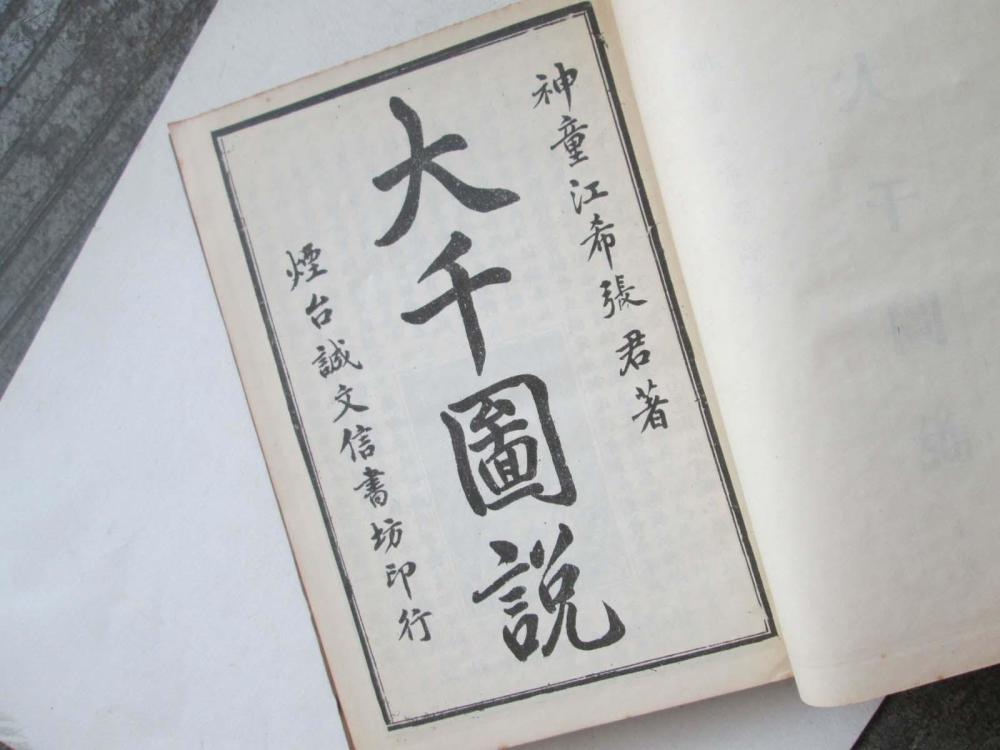 神童江希張君著
大千圖説
煙台誠文信書坊印行